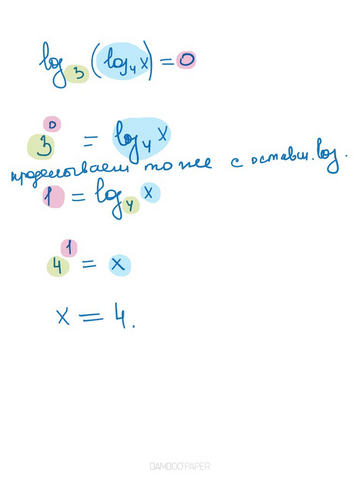 log₃(log₄x)=0
3⁰ = log₄x
проделываем то же с оставш. log.
1 = log₄x
4¹ = x
x = 4.
BAMBOO PAPER